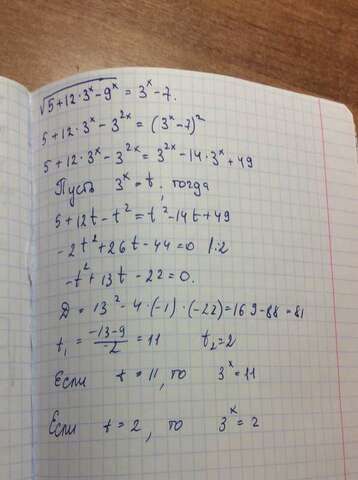 √(5+12·3ˣ-9ˣ) = 3ˣ-7.
5+12·3ˣ-3²ˣ = (3ˣ-7)²
5+12·3ˣ-3²ˣ = 3²ˣ-14·3ˣ+49
Пусть 3ˣ = t, тогда
5+12t-t² = t²-14t+49
-2t²+26t-44=0 |:2
-t²+13t-22=0.
D = 13²-4·(-1)·(-22)=169-88=81
t₁ = (-13-9)/-2 = 11 t₂=2
Если t=11, то 3ˣ=11
Если t=2, то 3ˣ=2